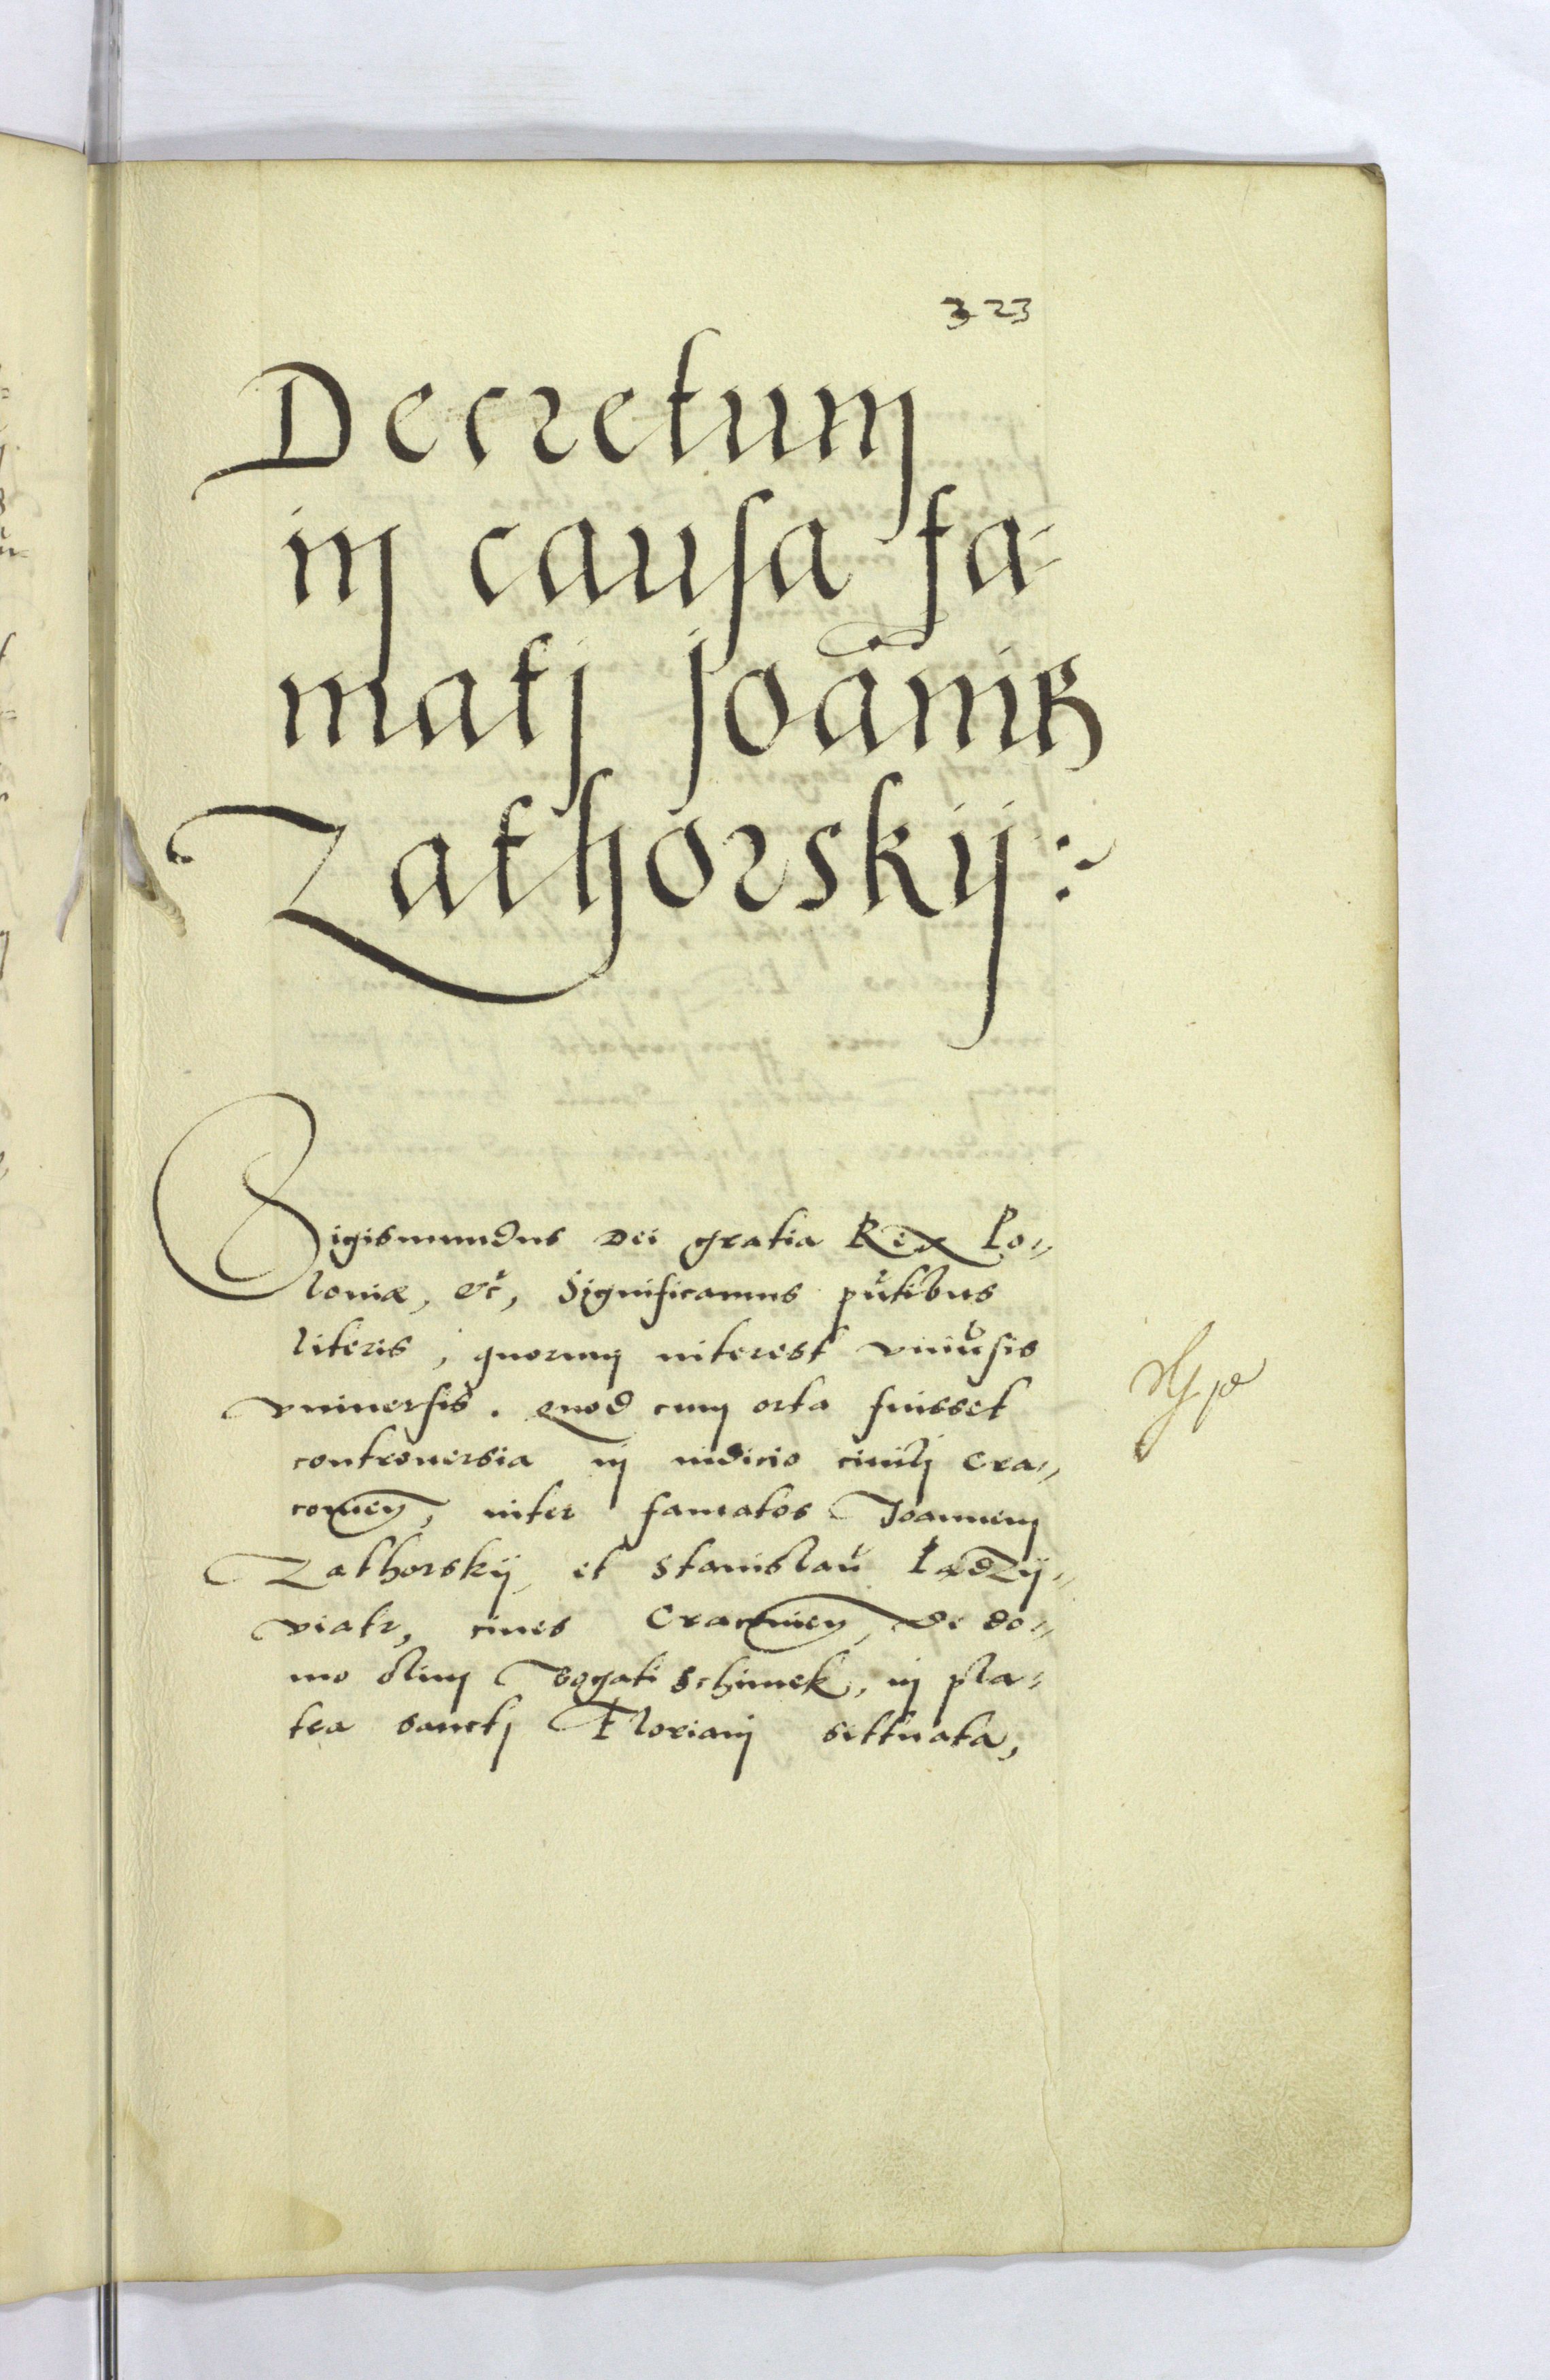 323
Decretum
in causa fa-
mati Joãnis
Zathorskij:
Sigismundus Dei gratia Rex Po„
loniæ, &c, Significamus pñtibus
literis, quorum interest vniũsis
vniuersis. Quod cum orta fuisset
controuersia in iudicio ciuili Cra„
couien, inter famatos Joannem
Zathorskij, et Stanislaũ Padzij„
viatr, ciues Cracouien, de do„
mo olim Bogati Schimek, in pla„
tea sancti Floriani sittuata,